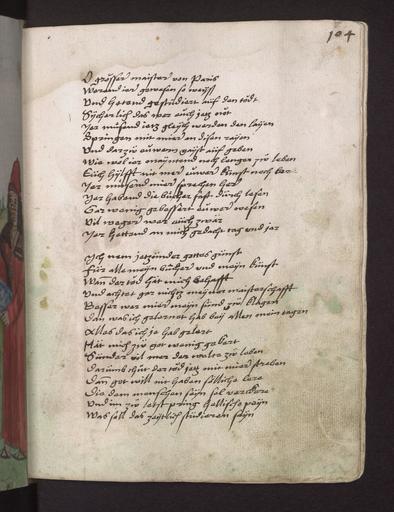 104
O grosser maister von Paris
Werend ier gewesen so weyss
Und hetend gestudiert auf den tödt
Sicherlich das wer auch jetz nöt
Jer müsend jetz gleych werden den layen
Springen mit mier an disen rayen
Und darzu euwern geyst auff geben
Wie wol ier mayntend noch lenger zu leben
Euch hilfft nit mer euwer kunst noch
Jer müsend mier sprechen hor
Jer habend die bücher fast durch lesen
Gar wenig gebessert euwer wesen
Vil weger wer euch zwar
Jer hettend an mich gedacht tag und jar
Ich nem jetzunder gottes gunst
Für alle meyn bücher und meyn kunst
Wan der tod hat mich behafft
Und achtet gar nichtz meyner maisterschafft
Besser wer mier meyn sünd zu klagen
Den was ich gelernet hab bey allen mein tagen
Alles das ich je hab gelert
Hat mich zu got wenig gekert
Sünder vil mer der welte zu loben
Darumb thut der töd jetz mit mier streben
Dan got will nit haben söttliche lere
Die dem menschen seyn sel
Und im zu letst pring hellische peyn
Was soll das zeytlich studieren seyn